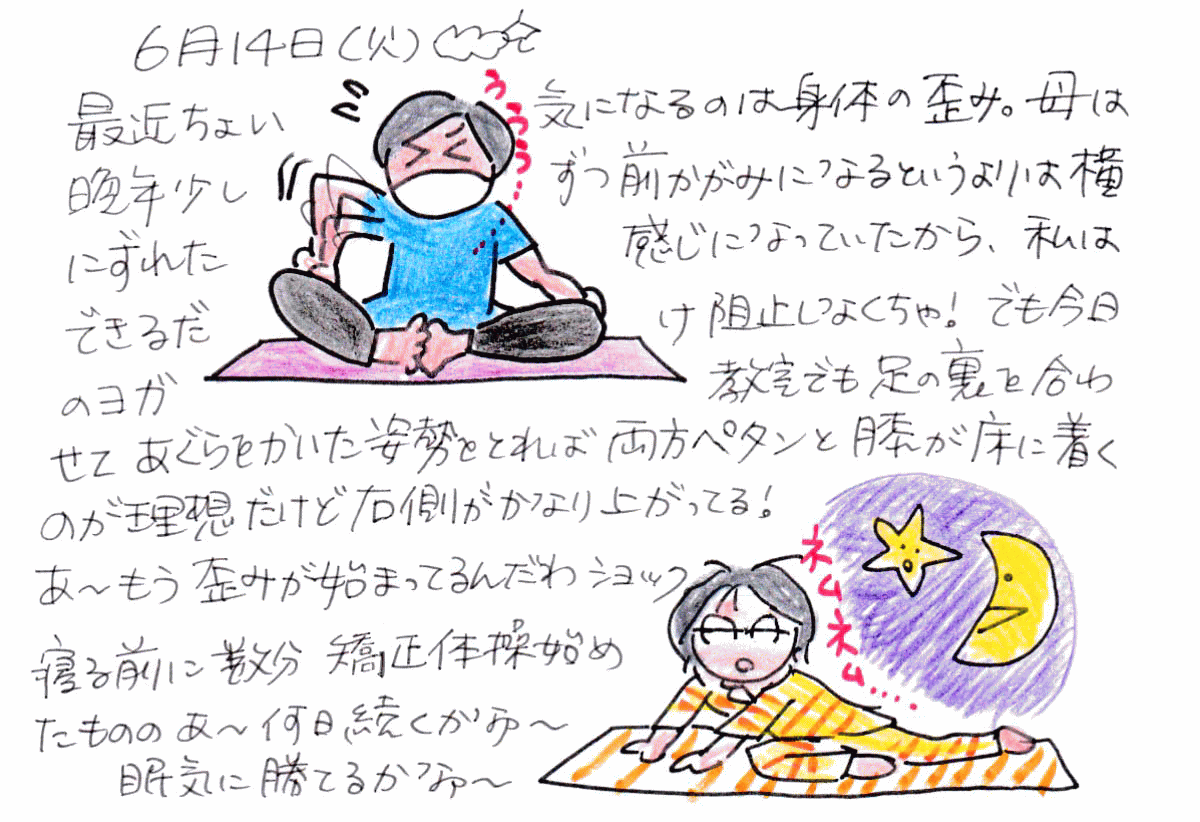 6月14日(火)
最近ちょい 気になるのは身体の歪み。母は
晩年少し ずつ前かがみになるというよりは横
にずれた 感じになっていたから、私は
できるだ け阻止しなくちゃ！でも今日
のヨガ 教室でも足の裏を合わ
せてあぐらをかいた姿勢をとれば両方ペタンと膝が床に着く
のが理想だけど右側がかなり上がってる！
あ〜もう歪みが始まってるんだわショック
寝る前に数分矯正体操始め
たもののあ〜何日続くかな〜
眠気に勝てるかな〜
うううう…
ネムネム…